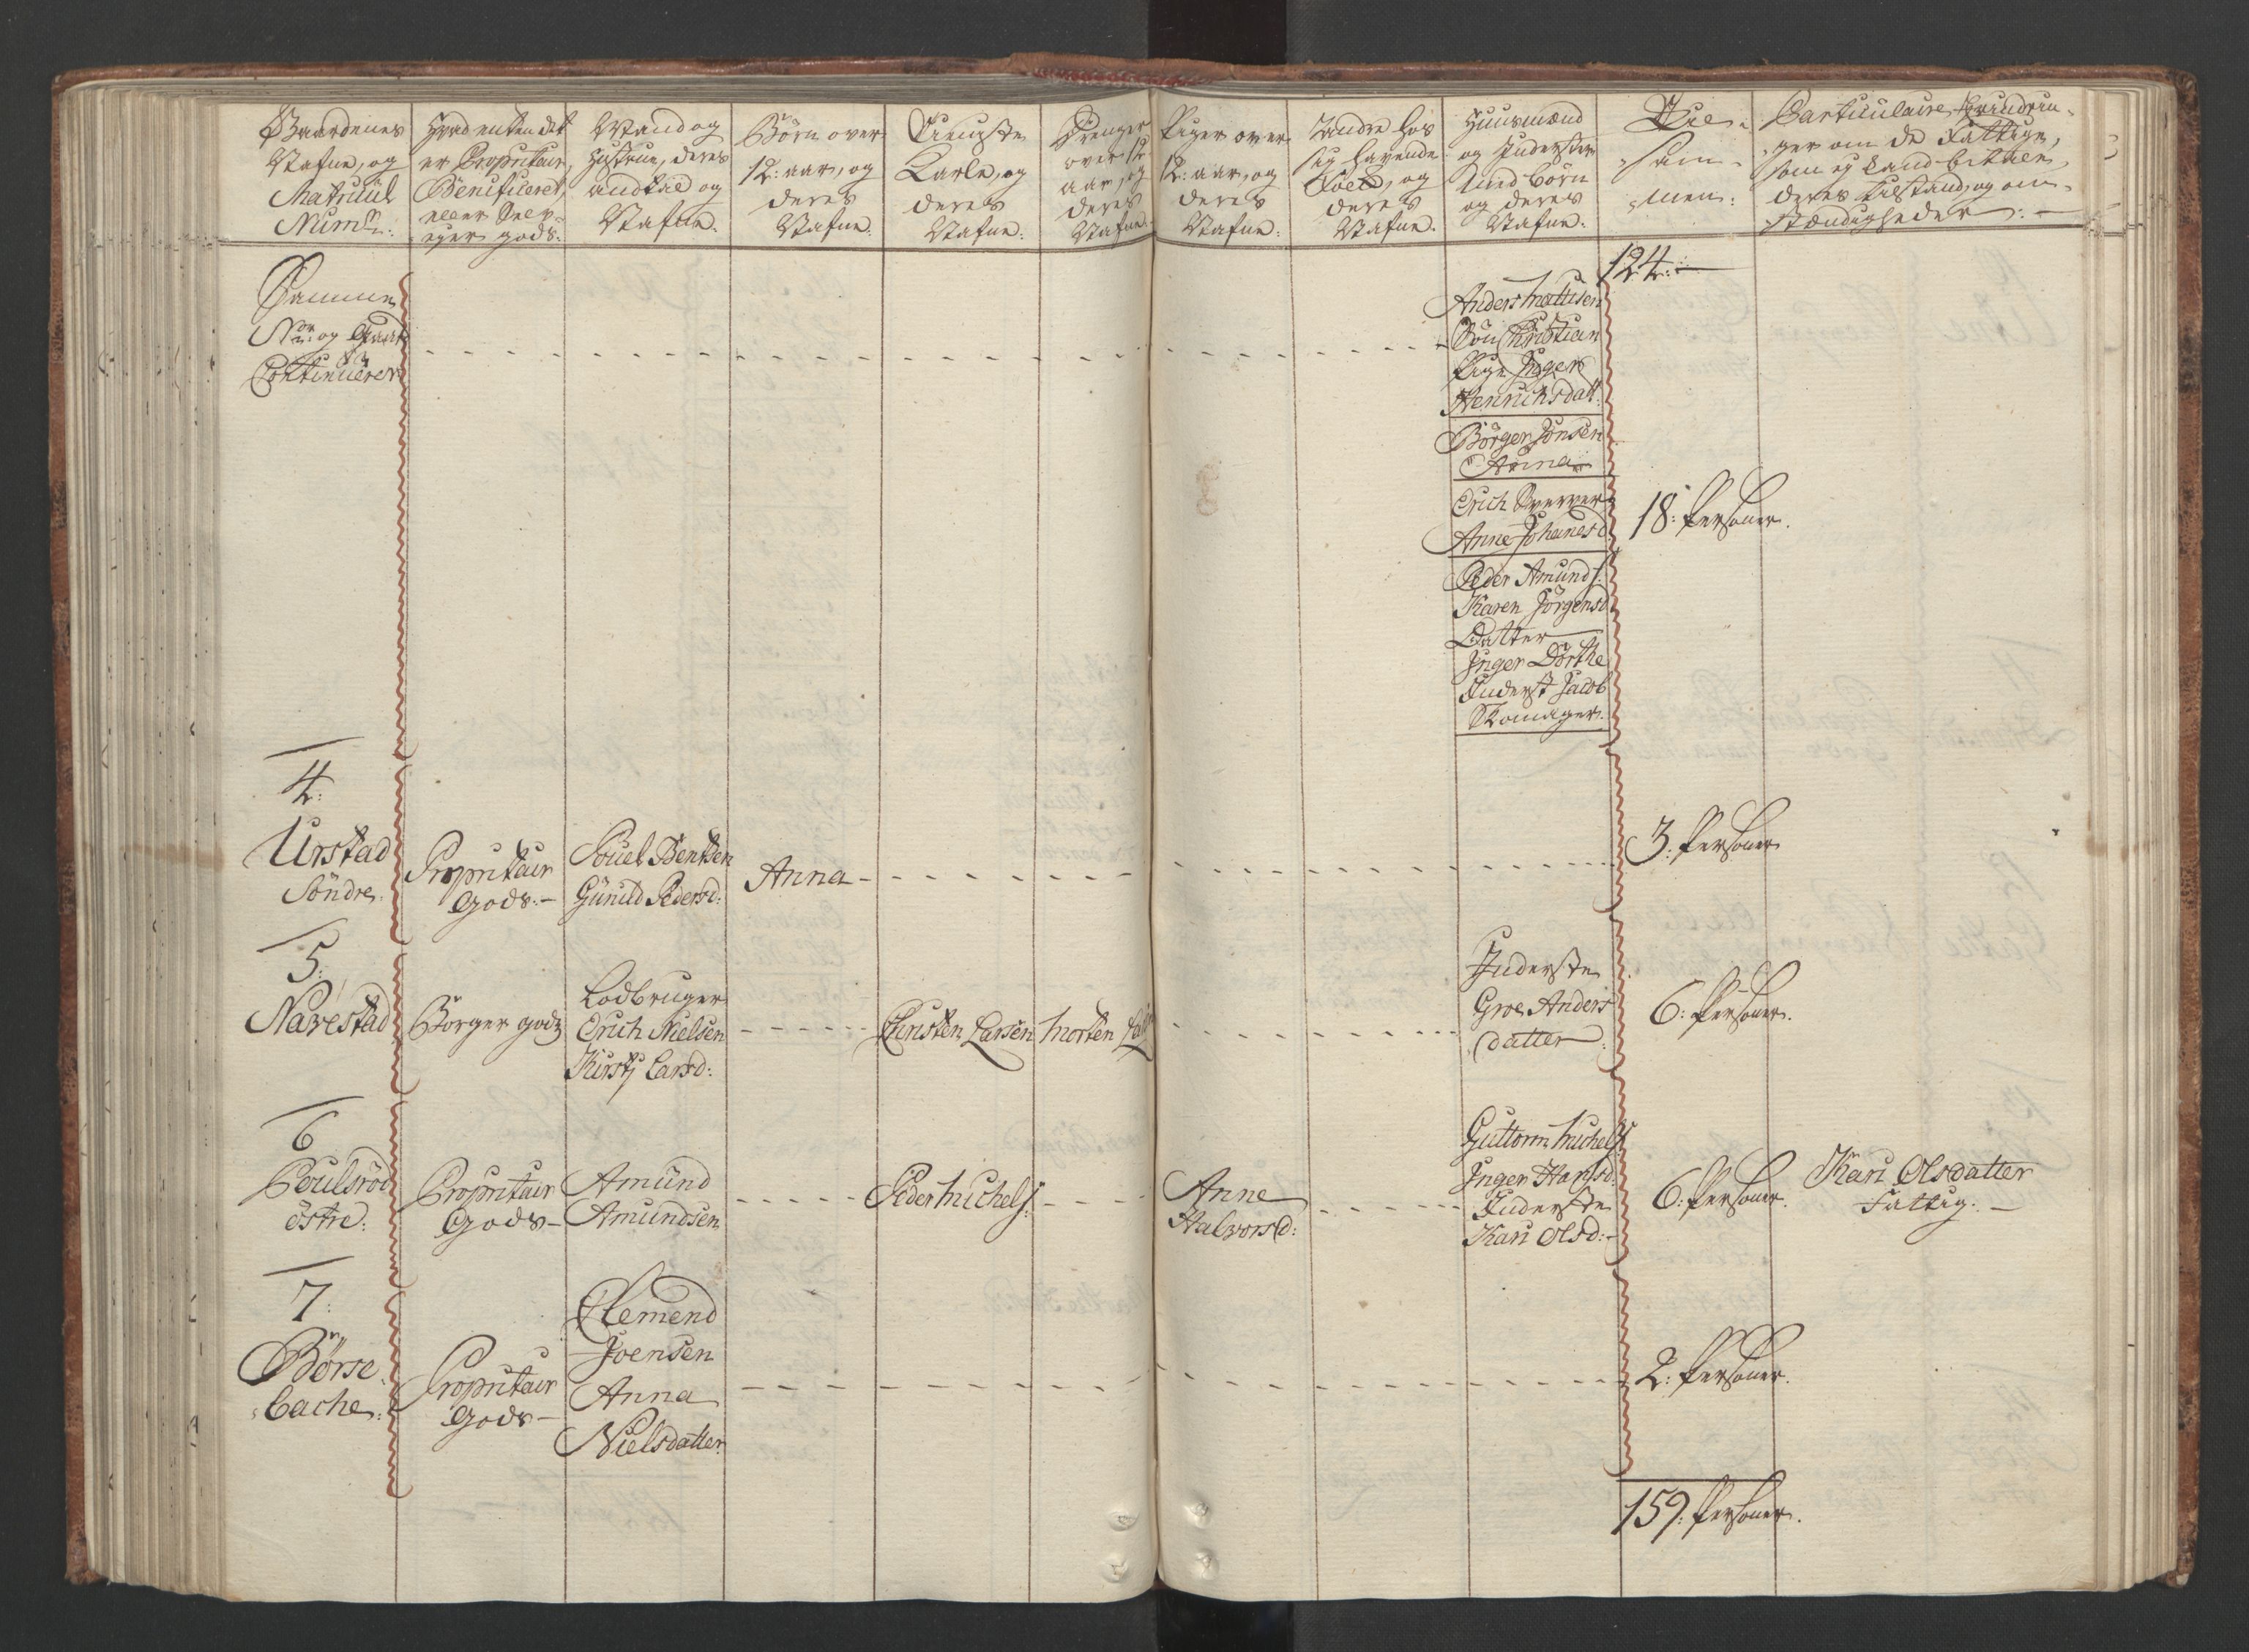 Gaardenes
Nafne, og
Matricul
Num:
Hvad enten det
er Proprietair,
Beneficeret,
eller Selv-
ejer gods:
Mand og
Hustrue, deres
andtal og
Nafne.
Børn over
12: aar, og
deres
Nafne.
Tieniste
Karle, og
deres
Nafne:
Drenger
over 12
aar, og
deres
Nafne.
Piger over
12: aar, og
deres
Nafne.
andre hos
sig havende
Folck, og
deres
Nafne.
Huusmænd
og Inderster
med børn
og deres
Nafne.
Til-
sam-
men:
Particulaire Erindrin-
ger om de Fattige,
som ej kand betale,
deres tilstand, og om-
stændigheder: -
124:
Samme
No: og Gaard
Continuerer
Anders Mattisen
Søn Christian
Pige Inger
Henrichsdatt:
Börger Jonsen
Anna
Erich
Anne Johanesd
18: Personer.
Peder Amunds:
Karen Jörgensd
Datter
Inger Dorthe
Inderst Jacob
Skomager.
4:
Urstad
Söndre.
Proprietair
Gods:-
Povel Bentsen
Gunild Pedersd:
Anna
3: Personer
5:
Navestad
Börger gods
Lodbruger
Erich Nielsen
Kirstj Larsd:
Christen Larsen
Morten
Inderste
Groe Anders
datter
6: Personer.
6
Poulsröd
östre:
Proprietair
Gods-
Amund
Amundsen
Peder Michels:
Anne
Halvorsd:
Guttorm Michels:
Inger Hansd:
Inderste
Kari Olsd:-
6: Personer.
Kari Olsdatter
Fattig: -
7:
Börse
bache:
Proprietair
Gods-
Clemend
Joensen
Anna
Nielsdatter
2: Personer.
159: Personer.